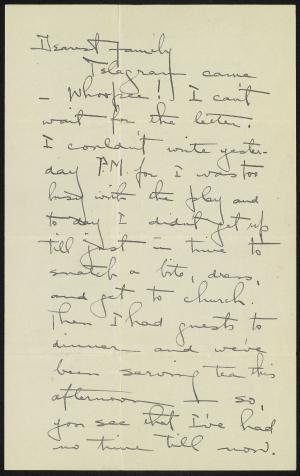 Dearest Family
Telegram came
- Whoopee! I can't
wait for the letter.
I couldn't write yester-
day P.M. for I was too
busy with the play and
to-day I didn't get up
till just in time to
snatch a bite, dress,
and get to church.
Then I had guests to
dinner and we've
been serving tea this
afternoon — so,
you see that I've had
no time till now.